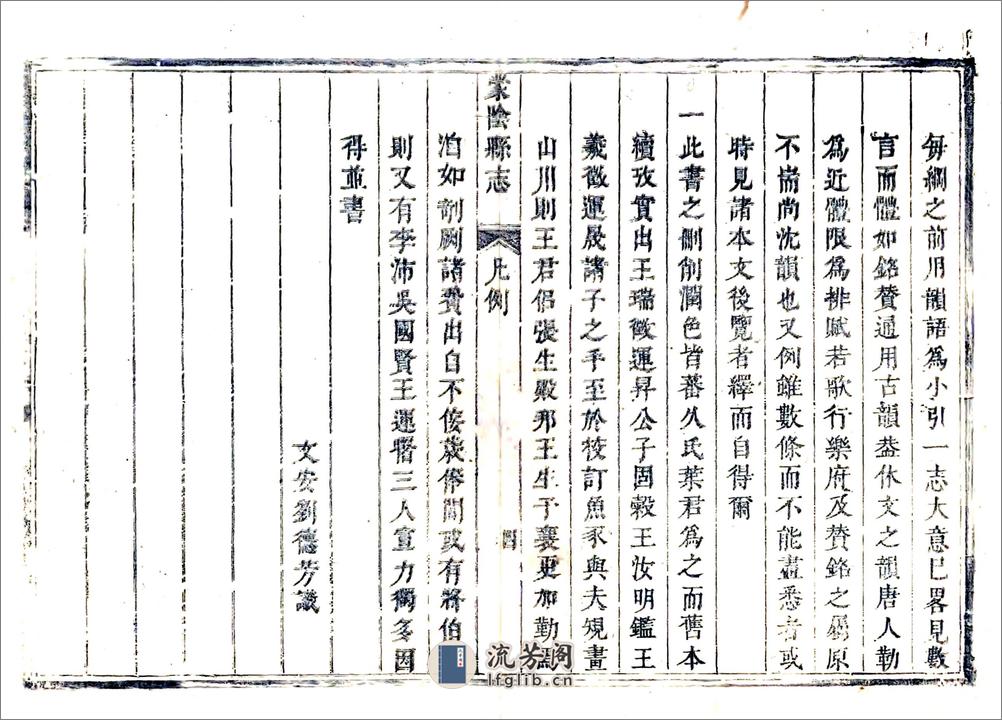 每綱之前用韻語爲小引一志大意已畧見數
言而體如銘贊通用古韻葢休文之韻唐人勒
爲近體限爲排賦若歌行樂府及贊銘之屬原
不耑尚沈韻也又例雖數條而不能盡悉者或
時見諸本文後覽者繹而自得爾
一此書之刪削潤色皆蕃久氏葉君爲之而舊本
續攷實出王瑞徵運昇公子固榖王汝明鑑王
羲徵運晟諸子之手至於校訂魚豕與夫規畫
山川則王君侶張生殿那王生予襄更加勤焉
蒙陰縣志
凡例
四
洎如剞劂諸費出自不佞歲俸間或有將伯
則又有李沛吳國賢王運暦三人宣力獨多因
得並書
文安劉德芳識
流芳阁
lfglib.cn